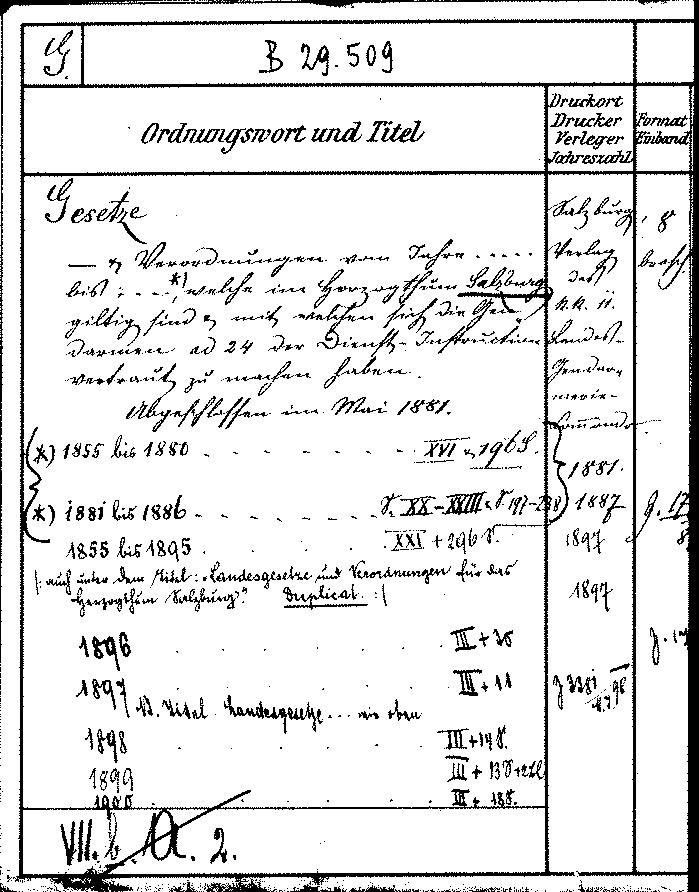 G. B 29.509
Ordnungswort und Titel
Druckort
Drucker
Verleger
Jahreszahl
Format
Einband
Gesetze
— & Verordnungen vom Jahre ....
bis : ... *) welche im Herzogthum Salzburg
giltig sind & mit welchen sich die Gen-
darmen ad 24 der Dienst-Instruction
vertraut zu machen haben.
Abgeschlossen im Mai 1881.
Salzburg,
Verlag
des
k.k. ü.
Landes-
Gendar-
merie-
Commando
8
brosch.
*) 1855 bis 1880 . . . . . . XVI & 196 S.
1881.
*) 1881 bis 1886 . . . . . S. XX-XXIII & S 197-238
1887
1855 bis 1895 . . . XXI + 296 S.
1897
|: auch unter dem Titel: "Landesgesetze und Verordnungen für das
Herzogthum Salzburg". Duplicat. :|
1897
1896 . . . . III + 38
1897 . . . . III + 11
NB. Titel Landesgesetze ... wie oben
1898 . . . . III + 14 S.
1899 III + 13 S +
1900 . . . . III + 18 S.
VII. b. A. 2.